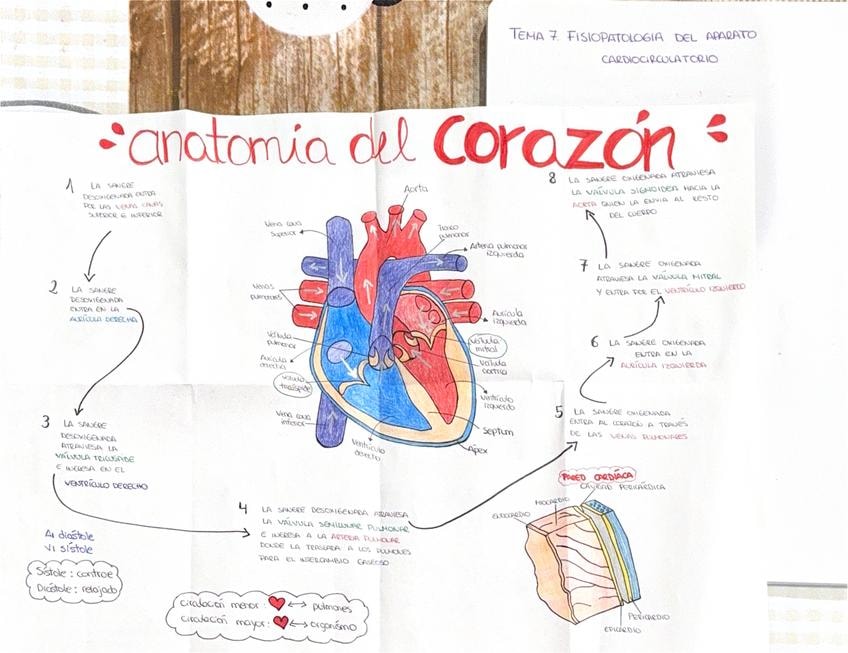 TEMA 7. FISIOPATOLOGIA DEL APARATO
CARDIOCIRCULATORIO
anatomía del corazón
1 LA SANGRE
DESOXIGENADA ENTRA
POR LAS VENAS CAVAS
SUPERIOR E INFERIOR
2 LA SANGRE
DESOXIGENADA
ENTRA EN LA
AURÍCULA DERECHA
3 LA SANGRE
DESOXIGENADA
ATRAVIESA LA
VÁLVULA TRICUSPIDE
E INGRESA EN EL
VENTRÍCULO DERECHO
4 LA SANGRE DESOXIGENADA ATRAVIESA
LA VÁLVULA SEMILUNAR PULMONAR
E INGRESA A LA ARTERIA PULMONAR
DONDE LA TRASLADA A LOS PULMONES
PARA EL INTERCAMBIO GASEOSO
5 LA SANGRE OXIGENADA
ENTRA AL CORAZÓN A TRAVÉS
DE LAS VENAS PULMONARES
6 LA SANGRE OXIGENADA
ENTRA EN LA
AURÍCULA IZQUIERDA
7 LA SANGRE OXIGENADA
ATRAVIESA LA VÁLVULA MITRAL
Y ENTRA POR EL VENTRÍCULO IZQUIERDO
8 LA SANGRE OXIGENADA ATRAVIESA
LA VÁLVULA SIGMOIDEA HACIA LA
AORTA QUIEN LA ENVIA AL RESTO
DEL CUERPO
Aorta
Vena cava
superior
Tronco
pulmonar
Arteria pulmonar
izquierda
Venas
pulmonares
Aurícula
izquierda
Válvula
pulmonar
Válvula
mitral
Aurícula
derecha
Válvula
aórtica
Ventrículo
izquierdo
Vena cava
inferior
Septum
Ventrículo
derecho
Ápex
PARED CARDÍACA
CAVIDAD PERICÁRDICA
MIOCARDIO
ENDOCARDIO
PERICARDIO
EPICARDIO
A diástole
V sístole
Sístole : contrae
Diástole : relajado
circulación menor : ↔ pulmones
circulación mayor : ↔ organismo